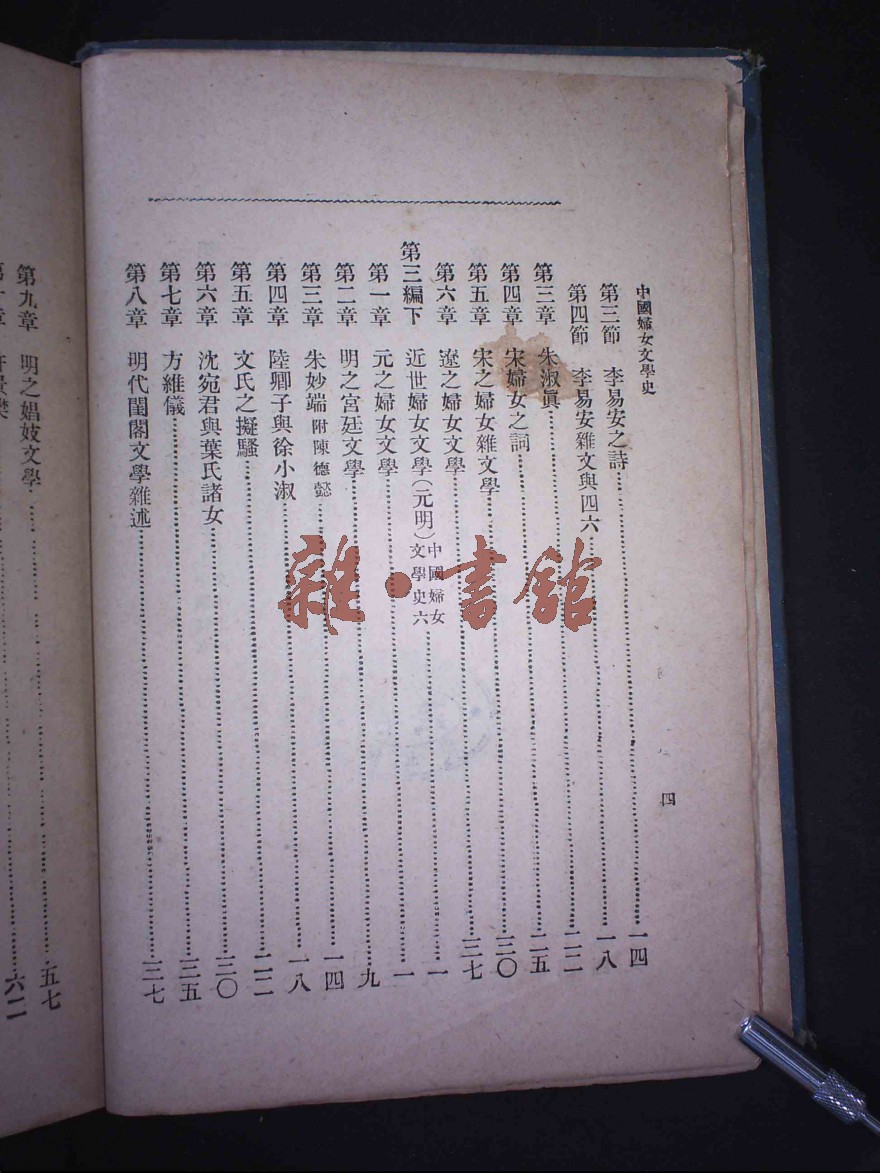 中國婦女文學史
四
第三節 李易安之詩……一四
第四節 李易安雜文與四六……一八
第三章 朱淑眞……二二
第四章 宋婦女之詞……二五
第五章 宋之婦女雜文學……三〇
第六章 遼之婦女文學……三七
第三編下 近世婦女文學(元明)中國婦女文學史六……一
第一章 元之婦女文學……一
第二章 明之宮廷文學……九
第三章 朱妙端 附陳德懿……一四
第四章 陸卿子與徐小淑……一八
第五章 文氏之擬騷……二二
第六章 沈宛君與葉氏諸女……三〇
第七章 方維儀……三五
第八章 明代閨閣文學雜述……三七
第九章 明之娼妓文學……五七
六二
雜·書館